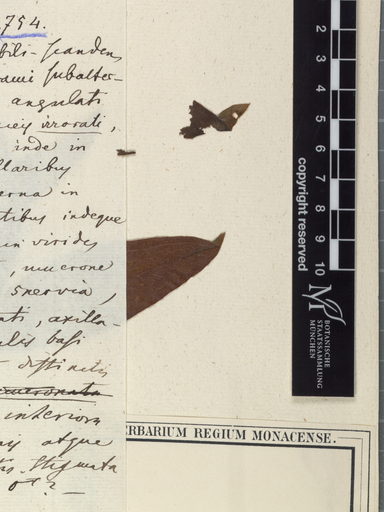 754.
bili-scandens
rami subalter-
angulati
irrorati,
inde in
llaribus
erna in
tibus indeque
virides
, mucrone
5nervia,
ati, axilla-
basi
distinctis
mucronata
interiora
atque
Stigmata
2
3
4
5
6
7
8
9
10
copyright reserved
BOTANISCHE
STAATSSAMMLUNG
MÜNCHEN
ERBARIUM REGIUM MONACENSE.